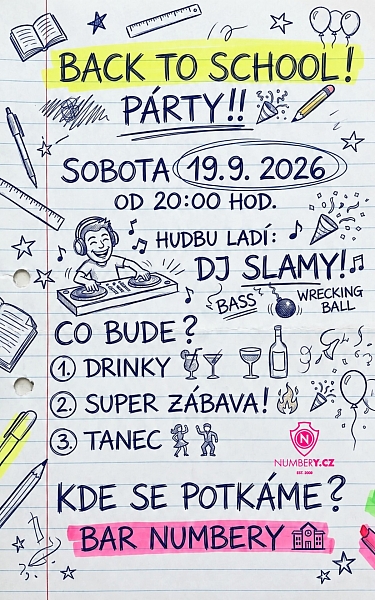 BACK TO SCHOOL!
PÁRTY!!
SOBOTA 19.9. 2026
OD 20:00 HOD.
HUDBU LADÍ:
DJ SLAMY!
BASS
WRECKING
BALL
CO BUDE?
1. DRINKY
2. SUPER ZÁBAVA!
3. TANEC
N
NUMBERY.CZ
EST. 2009
KDE SE POTKÁME?
BAR NUMBERY